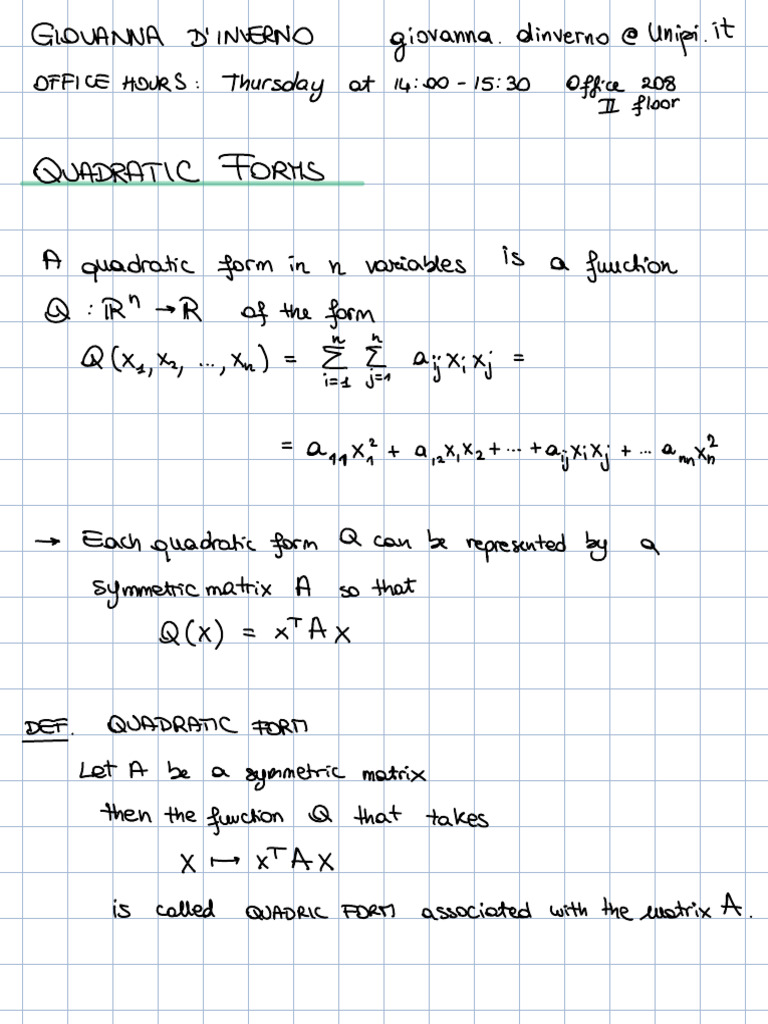 GIOVANNA D'INVERNO giovanna.dinverno@unipi.it
OFFICE HOURS: Thursday at 14:00-15:30 Office 208
II floor
QUADRATIC FORMS
A quadratic form in n variables is a function
Q : ℝⁿ → ℝ of the form
Q(x₁, x₂, ..., xₙ) = ∑ⁿᵢ₌₁ ∑ⁿⱼ₌₁ aᵢⱼ xᵢ xⱼ =
= a₁₁x₁² + a₁₂x₁x₂ + ... + aᵢⱼxᵢxⱼ + ... aₙₙxₙ²
→ Each quadratic form Q can be represented by a
symmetric matrix A so that
Q(x) = xᵀAx
DEF. QUADRATIC FORM
Let A be a symmetric matrix
then the function Q that takes
x ↦ xᵀAx
is called QUADRIC FORM associated with the matrix A.